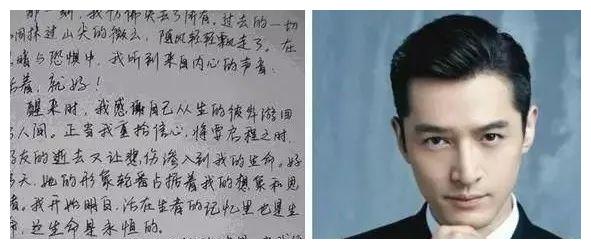 那一刻,我仿佛失去了所有。过去的一切
间抹过山尖的微云,随风轻轻飘走了。在
暗与恐惧中,我听到来自内心的声音:
活着,就好!
醒来时,我感谢自己从生的彼岸游回
人间。正当我重拾信心,将要启程之时,
好友的逝去又让悲伤渗入到我的生命。好
天,她的形象轮番占据着我的想象和思
考。我开始明白,活在生者的记忆里也是生
命,这生命是永恒的。